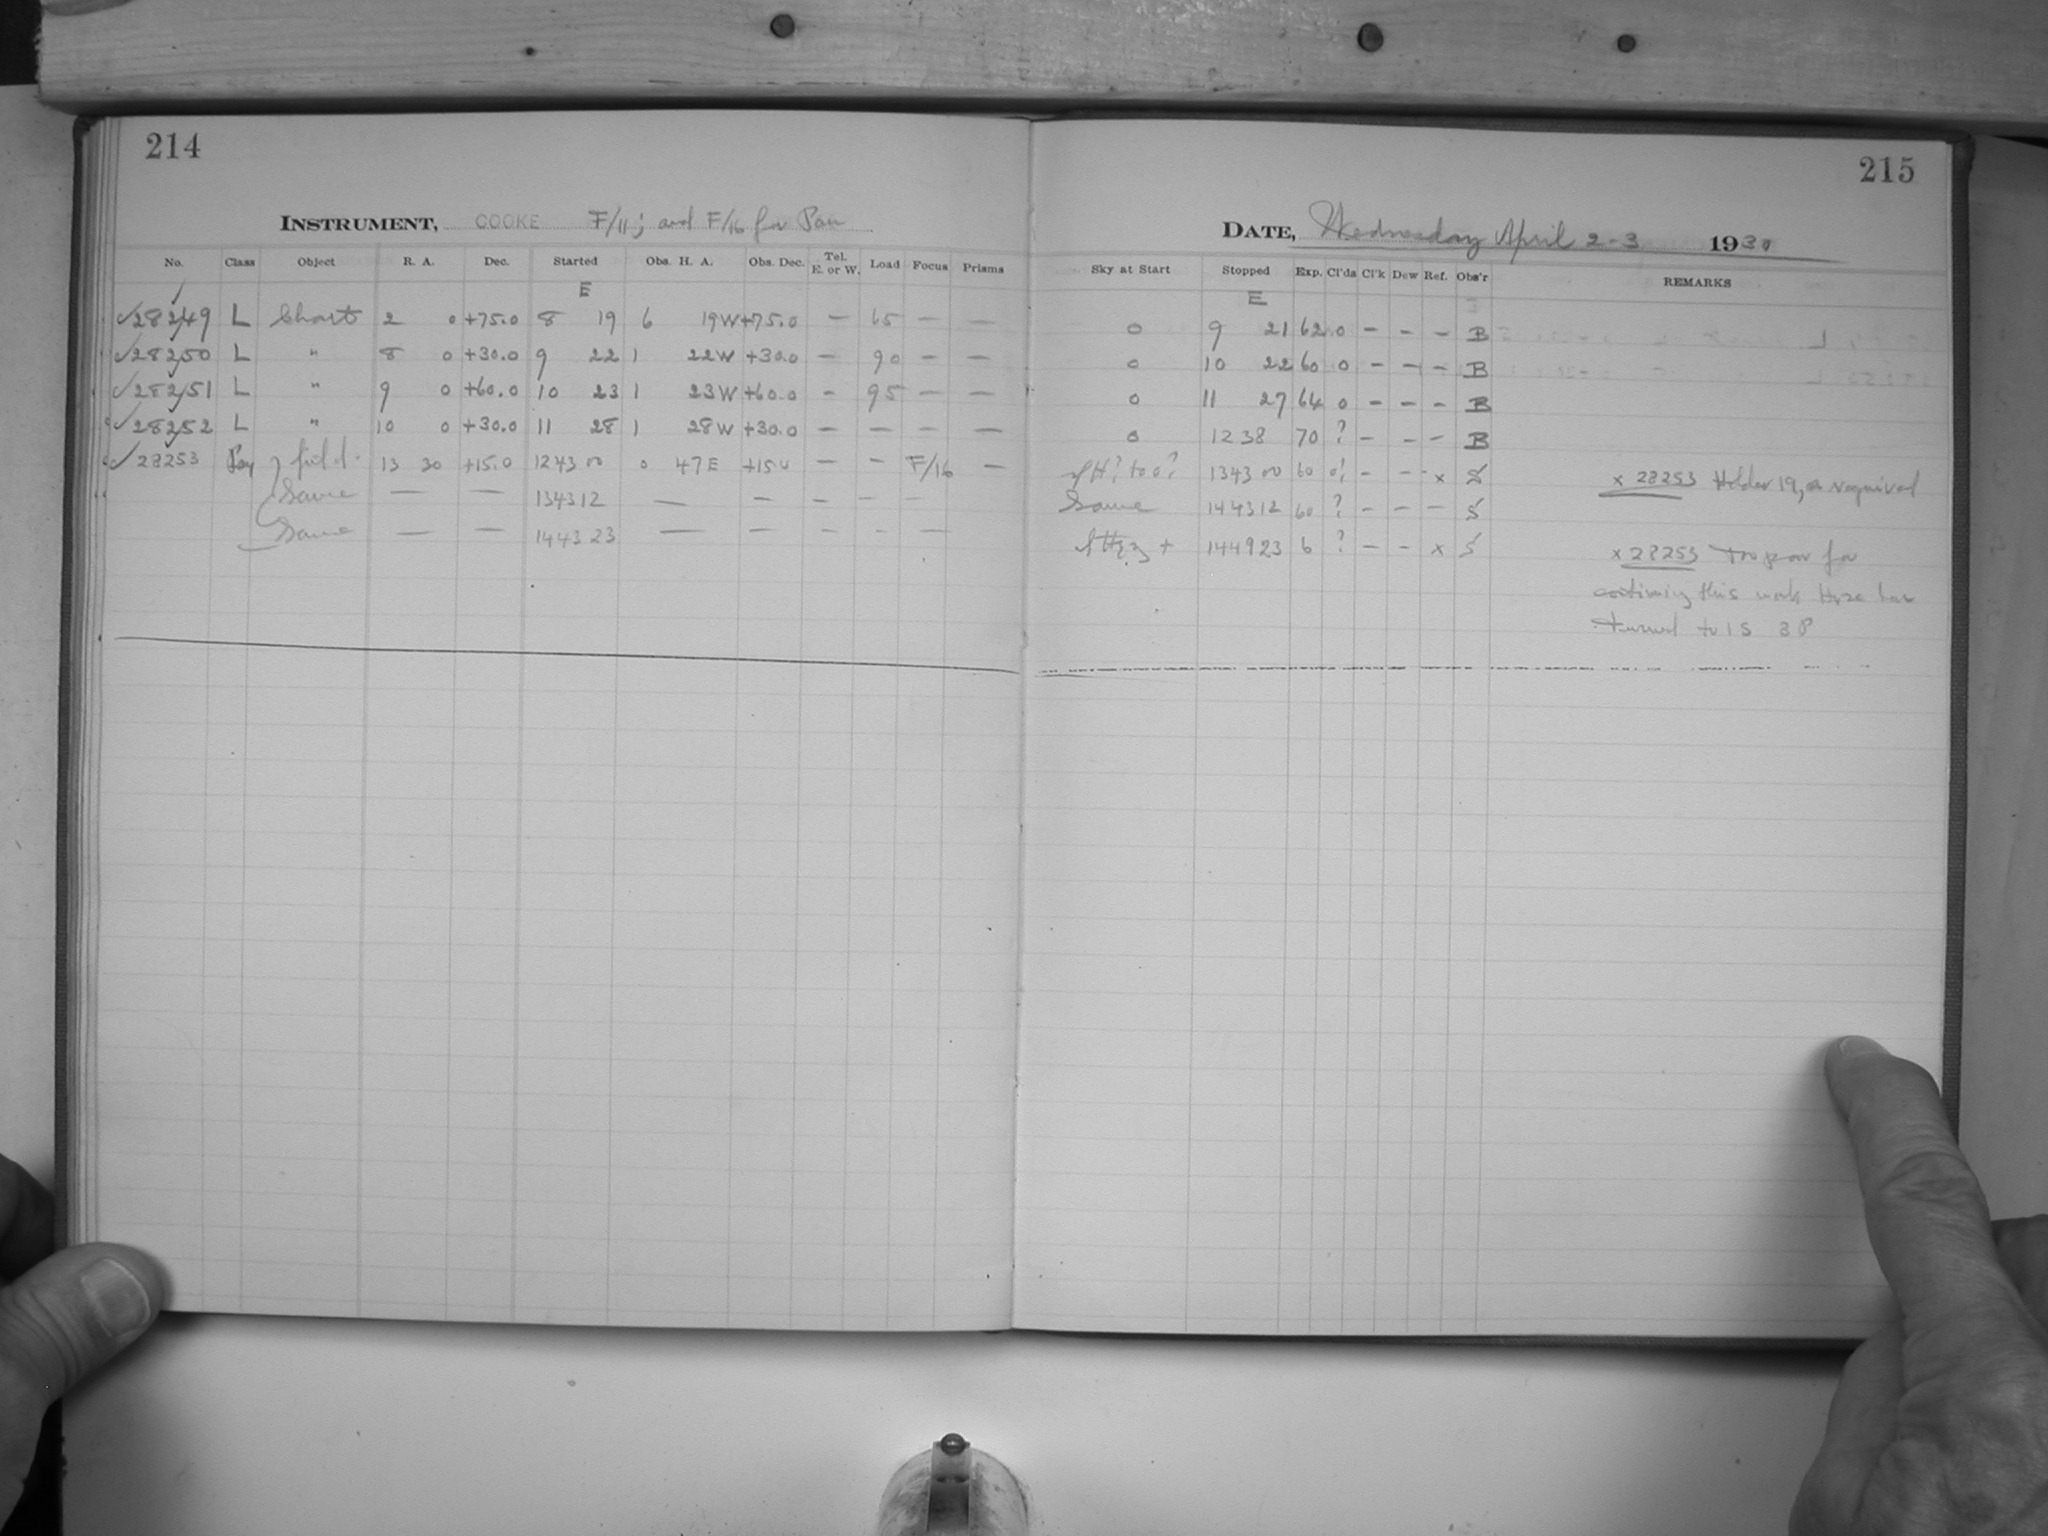 214
INSTRUMENT, COOKE F/11; and F/16 for Pan
No. Class Object R. A. Dec. Started Obs. H. A. Obs. Dec. Tel. E. or W. Load Focus Prisms
E
✓28249 L Chart 2 0 +75.0 8 19 6 19W +75.0 — 65 — —
✓28250 L " 8 0 +30.0 9 22 1 22W +30.0 — 90 — —
✓28251 L " 9 0 +60.0 10 23 1 23W +60.0 — 95 — —
✓28252 L " 10 0 +30.0 11 28 1 28W +30.0 — — — —
✓28253 field 13 30 +15.0 12 43 00 0 47E +15.0 — — F/16 —
Same — — 13 43 12 — — — — —
Same — — 14 43 23 — — — — —
215
DATE, Wednesday April 2-3 1930
Sky at Start Stopped Exp. Cl'ds Cl'k Dew Ref. Obs'r REMARKS
E
0 9 21 62 0 — — — B
0 10 22 60 0 — — — B
0 11 27 64 0 — — — B
0 12 38 70 ? — — — B
13 43 00 60 0? — — x S x 28253 Holder 19, as required
Same 14 43 12 60 ? — — — S
14 49 23 6 ? — — x S x 28253 Too poor for
continuing this work
turned to IS